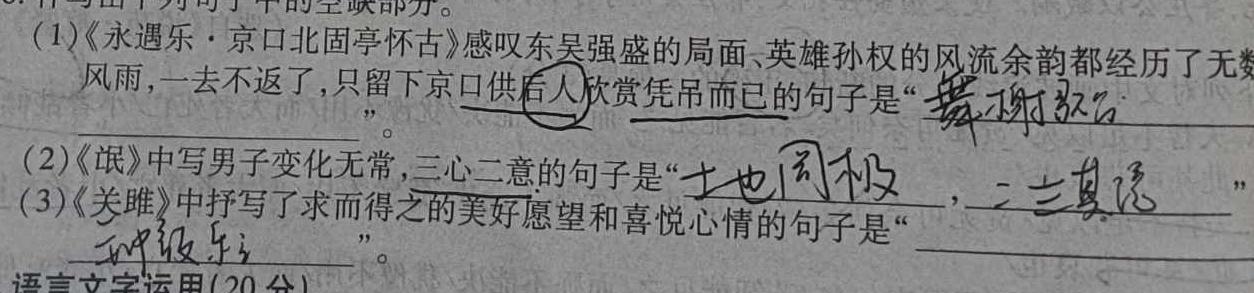 (1)《永遇乐·京口北固亭怀古》感叹东吴强盛的局面、英雄孙权的风流余韵都经历了无数
风雨,一去不返了,只留下京口供后人欣赏凭吊而已的句子是“舞榭歌台
”。
(2)《氓》中写男子变化无常,三心二意的句子是“士也罔极,二三其德”
(3)《关雎》中抒写了求而得之的美好愿望和喜悦心情的句子是“
钟鼓乐之”。
语言文字运用(20分)